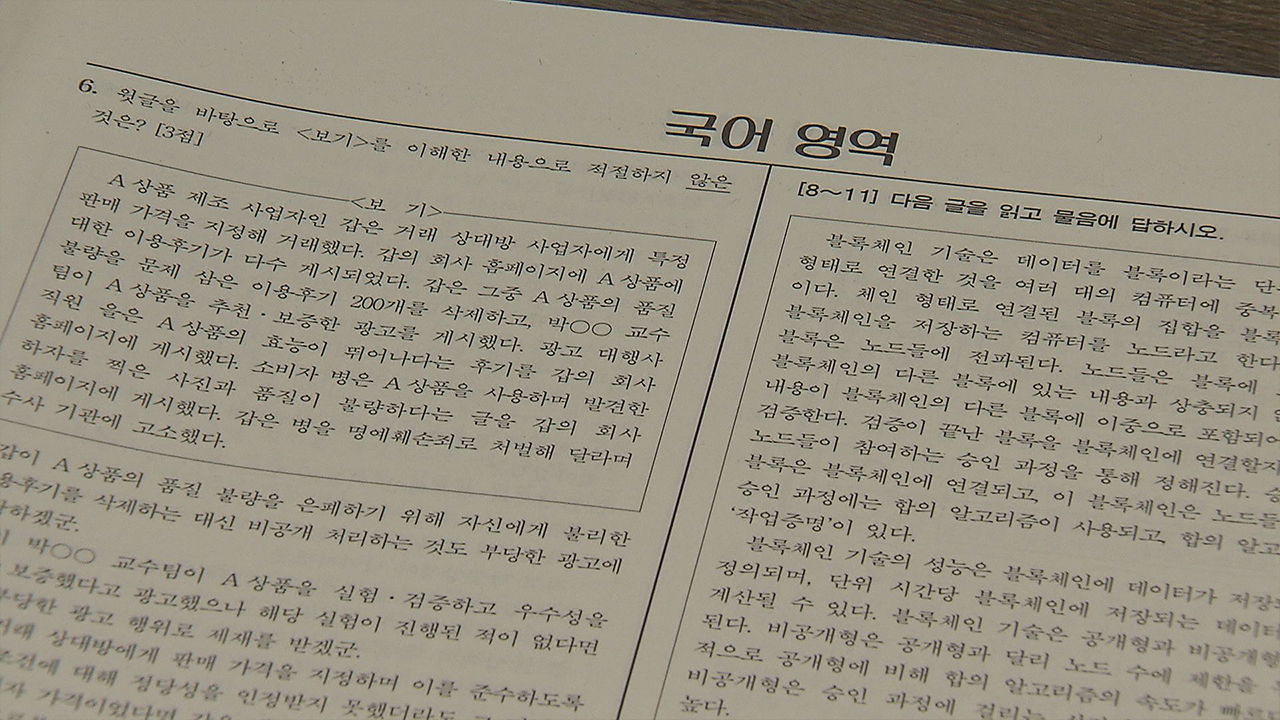 국어 영역
6. 윗글을 바탕으로 <보기>를 이해한 내용으로 적절하지 않은
것은? [3점]
<보 기>
A 상품 제조 사업자인 갑은 거래 상대방 사업자에게 특정
판매 가격을 지정해 거래했다. 갑의 회사 홈페이지에 A 상품에
대한 이용후기가 다수 게시되었다. 갑은 그중 A 상품의 품질
불량을 문제 삼은 이용후기 200개를 삭제하고, 박○○ 교수
팀이 A 상품을 추천·보증한 광고를 게시했다. 광고 대행사
직원 을은 A 상품의 효능이 뛰어나다는 후기를 갑의 회사
홈페이지에 게시했다. 소비자 병은 A 상품을 사용하며 발견한
하자를 찍은 사진과 품질이 불량하다는 글을 갑의 회사
홈페이지에 게시했다. 갑은 병을 명예훼손죄로 처벌해 달라며
수사 기관에 고소했다.
갑이 A 상품의 품질 불량을 은폐하기 위해 자신에게 불리한
용후기를 삭제하는 대신 비공개 처리하는 것도 부당한 광고에
하겠군.
박○○ 교수팀이 A 상품을 실험·검증하고 우수성을
보증했다고 광고했으나 해당 실험이 진행된 적이 없다면
부당한 광고 행위로 제재를 받겠군.
거래 상대방에게 판매 가격을 지정하며 이를 준수하도록
조건에 대해 정당성을 인정받지 못했더라도
가격이었다면
[8～11] 다음 글을 읽고 물음에 답하시오.
블록체인 기술은 데이터를 블록이라는 단
형태로 연결한 것을 여러 대의 컴퓨터에 중복
이다. 체인 형태로 연결된 블록의 집합을 블록
블록체인을 저장하는 컴퓨터를 노드라고 한다
블록은 노드들에 전파된다. 노드들은 블록에
블록체인의 다른 블록에 있는 내용과 상충되지
내용이 블록체인의 다른 블록에 이중으로 포함되어
검증한다. 검증이 끝난 블록을 블록체인에 연결할지
노드들이 참여하는 승인 과정을 통해 정해진다. 승
블록은 블록체인에 연결되고, 이 블록체인은 노드들
승인 과정에는 합의 알고리즘이 사용되고, 합의 알고
'작업증명'이 있다.
블록체인 기술의 성능은 블록체인에 데이터가 저장
정의되며, 단위 시간당 블록체인에 저장되는 데이터
계산될 수 있다. 블록체인 기술은 공개형과 비공개형
된다. 비공개형은 공개형과 달리 노드 수에 제한을
적으로 공개형에 비해 합의 알고리즘의 속도가 빠르
비공개형은 승인 과정에 걸리는
높다.